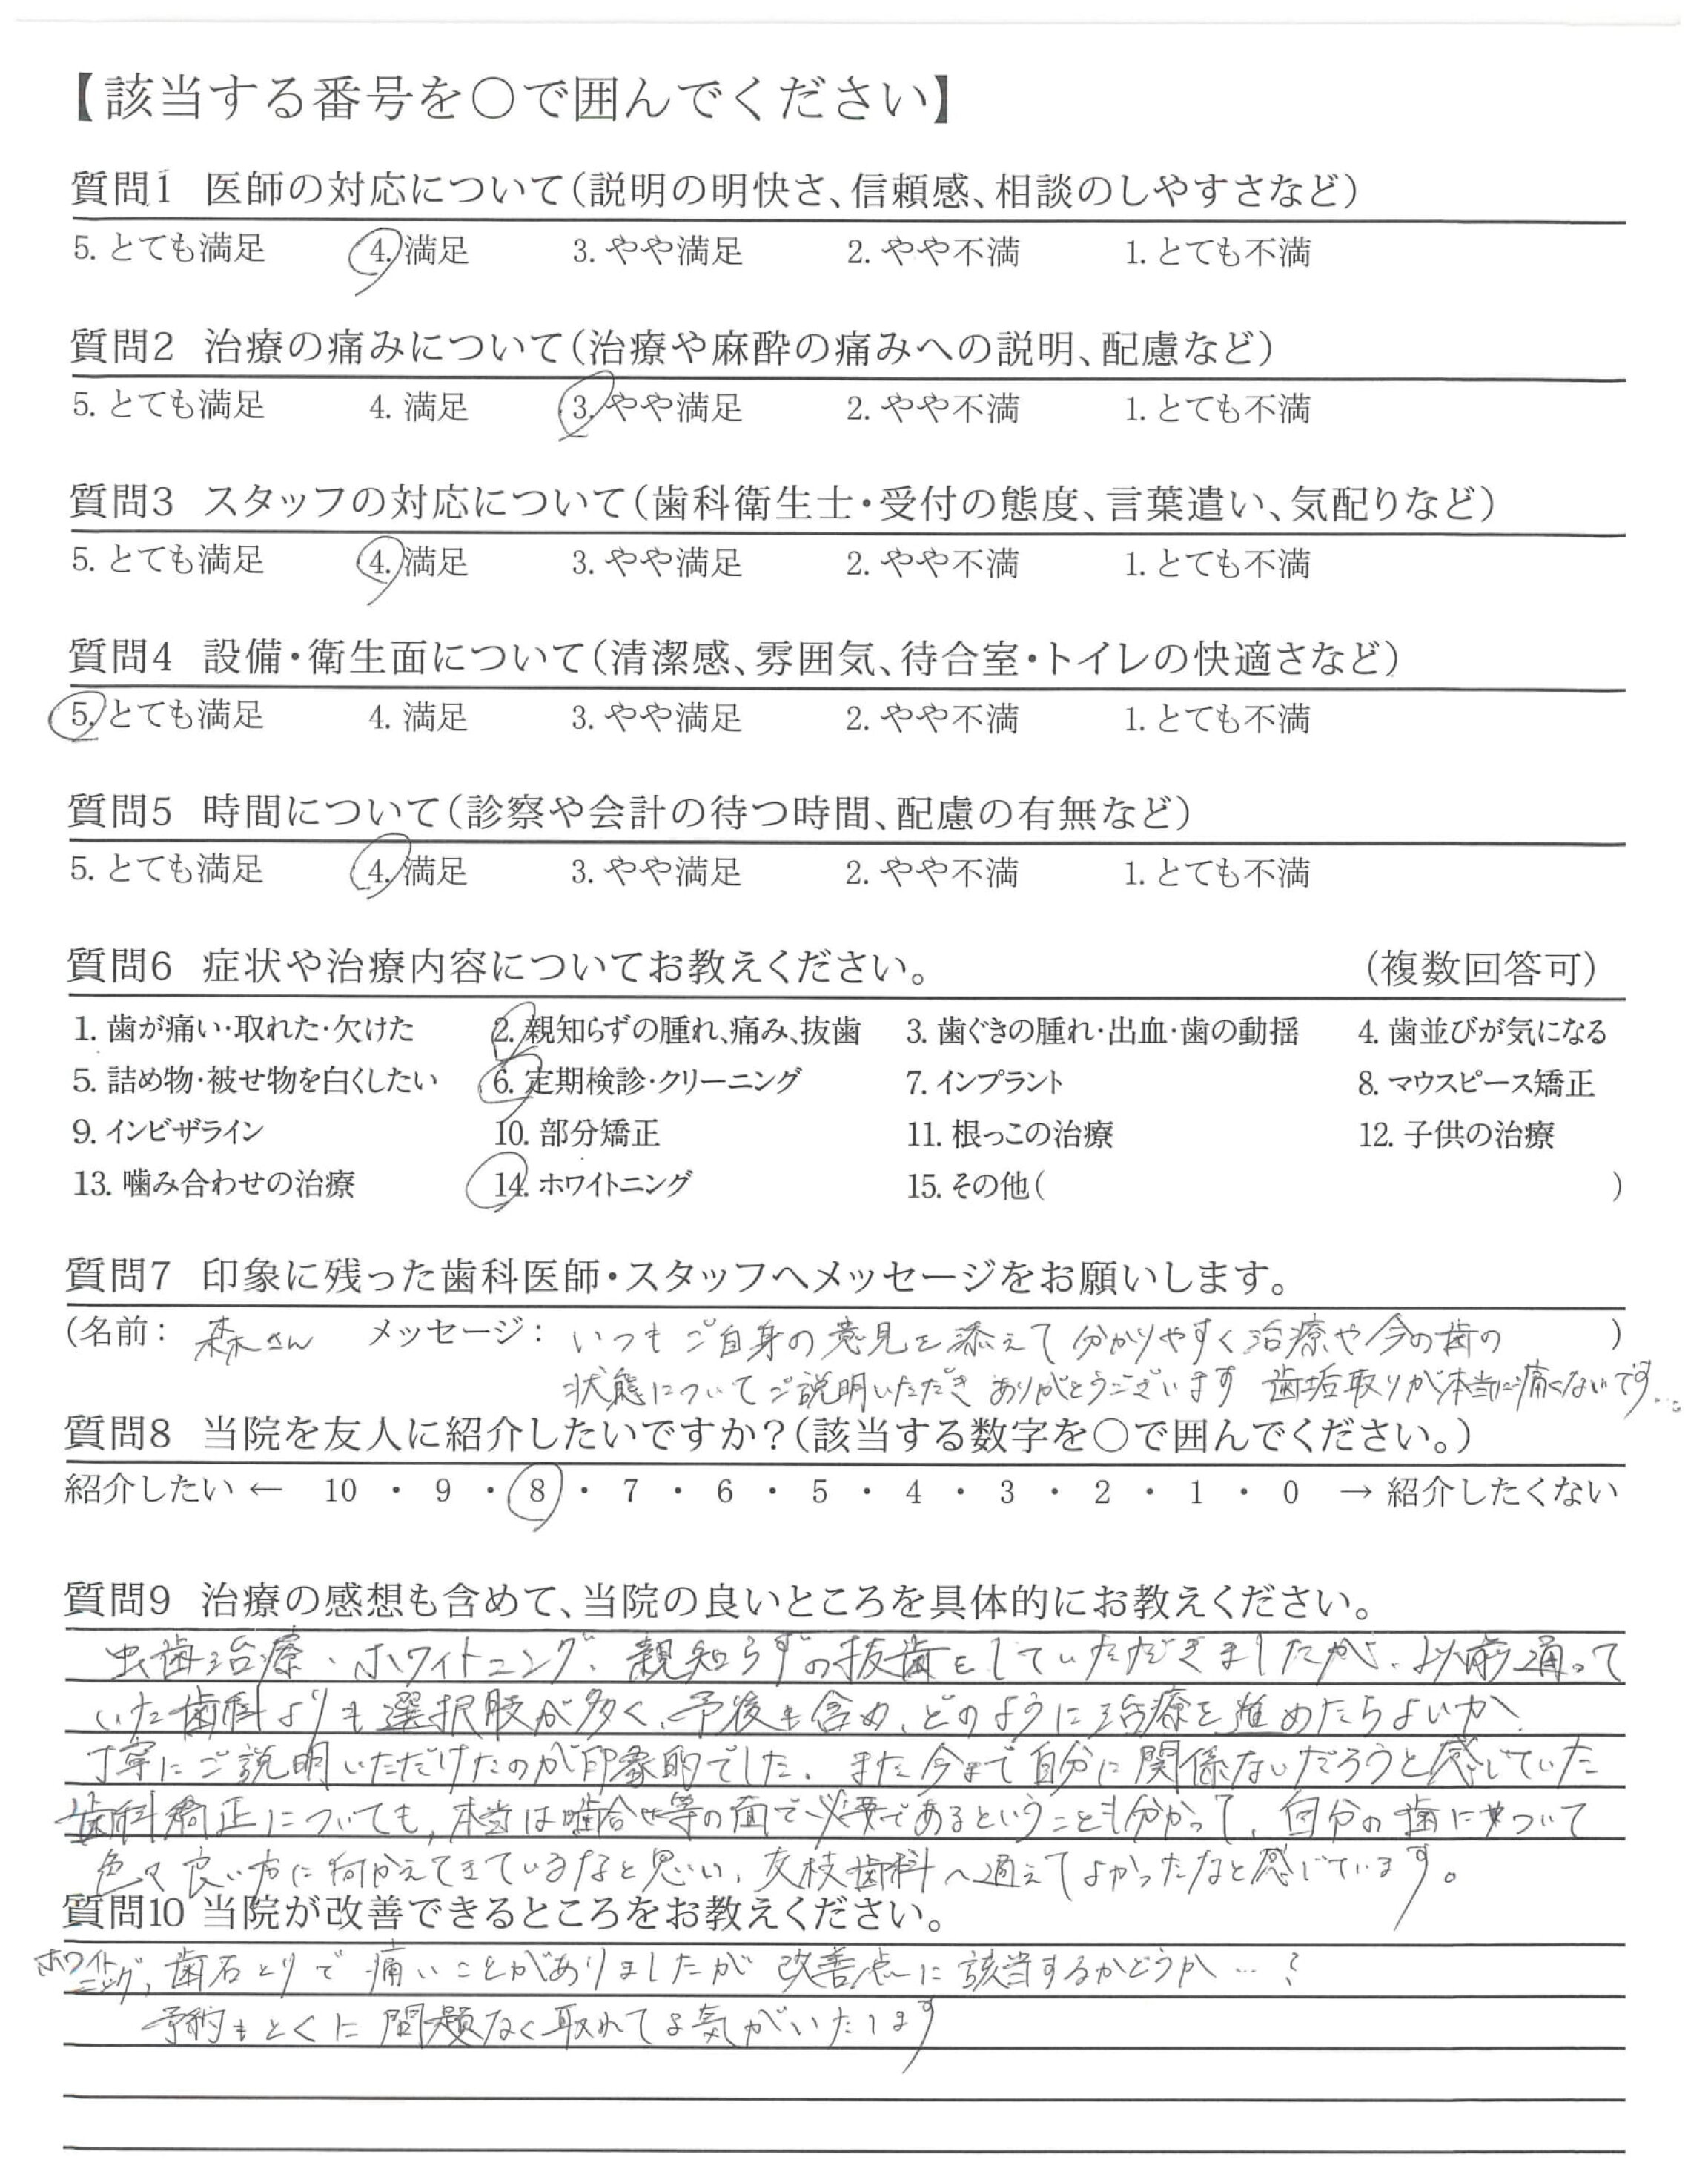 【該当する番号を〇で囲んでください】
質問1 医師の対応について(説明の明快さ、信頼感、相談のしやすさなど)
5. とても満足 4. 満足 3. やや満足 2. やや不満 1. とても不満
質問2 治療の痛みについて(治療や麻酔の痛みへの説明、配慮など)
5. とても満足 4. 満足 3. やや満足 2. やや不満 1. とても不満
質問3 スタッフの対応について(歯科衛生士・受付の態度、言葉遣い、気配りなど)
5. とても満足 4. 満足 3. やや満足 2. やや不満 1. とても不満
質問4 設備・衛生面について(清潔感、雰囲気、待合室・トイレの快適さなど)
5. とても満足 4. 満足 3. やや満足 2. やや不満 1. とても不満
質問5 時間について(診察や会計の待つ時間、配慮の有無など)
5. とても満足 4. 満足 3. やや満足 2. やや不満 1. とても不満
質問6 症状や治療内容についてお教えください。 (複数回答可)
1. 歯が痛い・取れた・欠けた 2. 親知らずの腫れ、痛み、抜歯 3. 歯ぐきの腫れ・出血・歯の動揺 4. 歯並びが気になる
5. 詰め物・被せ物を白くしたい 6. 定期検診・クリーニング 7. インプラント 8. マウスピース矯正
9. インビザライン 10. 部分矯正 11. 根っこの治療 12. 子供の治療
13. 噛み合わせの治療 14. ホワイトニング 15. その他( )
質問7 印象に残った歯科医師・スタッフへメッセージをお願いします。
(名前: 森さん メッセージ: いつもご自身の意見を添えて分かりやすく治療や今の歯の )
状態についてご説明いただきありがとうございます 歯垢取りが本当に痛くないです...。
質問8 当院を友人に紹介したいですか?(該当する数字を〇で囲んでください。)
紹介したい ← 10 ・ 9 ・ 8 ・ 7 ・ 6 ・ 5 ・ 4 ・ 3 ・ 2 ・ 1 ・ 0 → 紹介したくない
質問9 治療の感想も含めて、当院の良いところを具体的にお教えください。
虫歯治療、ホワイトニング、親知らずの抜歯をしていただきましたが、以前通って
いた歯科よりも選択肢が多く、予後も含め、どのように治療を進めたらよいか、
丁寧にご説明いただけたのが印象的でした。また今まで自分に関係ないだろうと感じていた
歯科矯正についても、本当は噛合せ等の面で必要であるということも分かって、自分の歯について
色々良い方に向かえてきているなと思い、友枝歯科へ通えてよかったなと感じています。
質問10 当院が改善できるところをお教えください。
ホワイトニング、歯石とりで痛いことがありましたが改善点に該当するかどうか…?
予約もとくに問題なく取れてる気がいたします